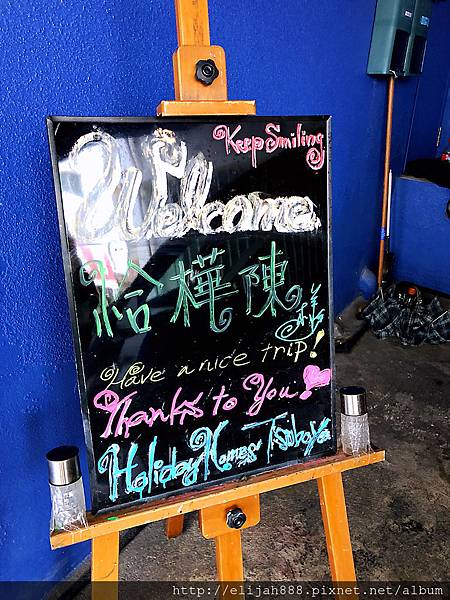 Keep Smiling
Welcome
怡樺陳
様
Have a nice trip!
Thanks to You
Holiday Homes Tsuboya
http://elijah888.pixnet.net/album